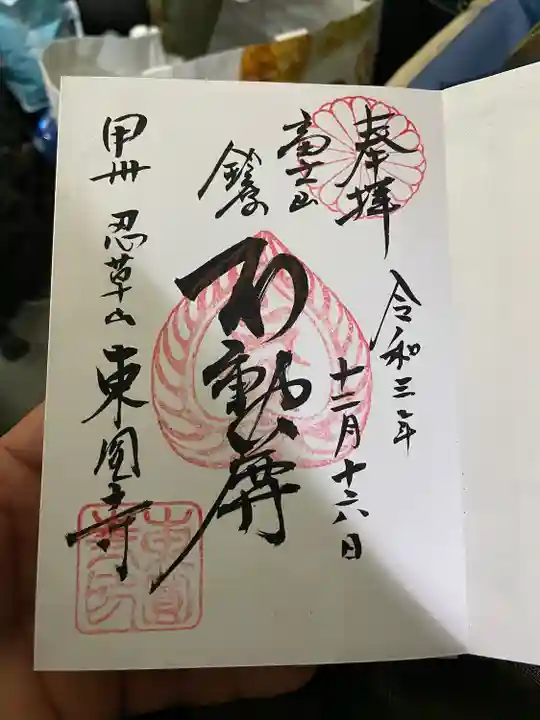 奉拝
令和三年
十二月十六日
富士山
鎮
不動尊
甲州 忍草山 東圓寺